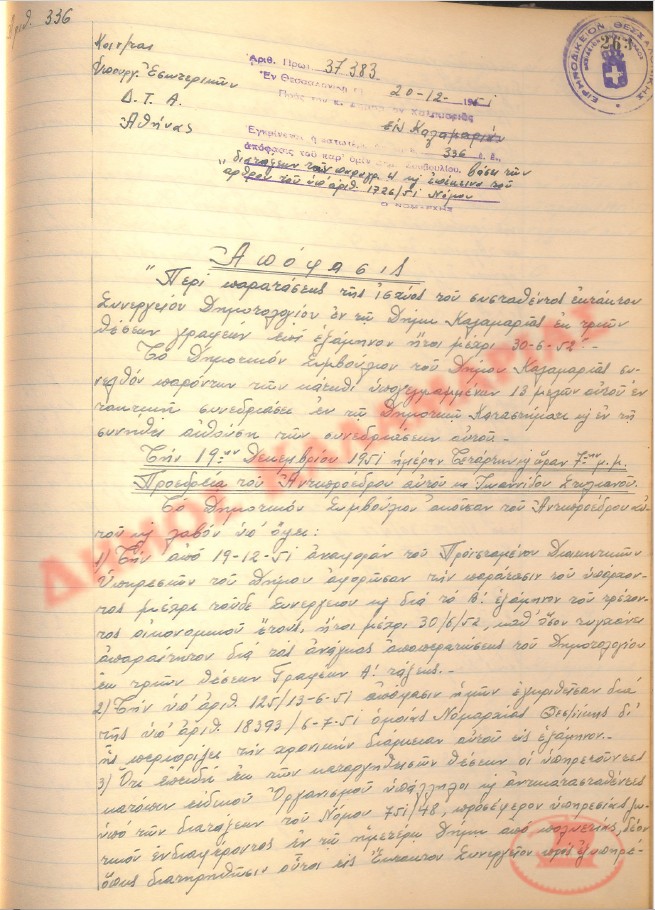 Αριθ. 336
Κοιν/ται
Υπουργ. Εσωτερικών
Δ.Τ.Α.
Αθήνας
Αριθ. Πρωτ. 37.383
Ἐν Θεσσαλονίκῃ τῇ 20-12-1951
Πρὸς τὸν κ. Δήμαρχον Καλαμαριᾶς
Εἰς Καλαμαριάν
Ἐγκρίνεται ἡ 336 ἐ. ἔ.
ἀπόφασις τοῦ παρ' ὑμῖν Συμβουλίου, βάσει τῶν
διατάξεων τῶν παραγρ. 4 κ ἑπόμενα τοῦ
ἄρθρου τοῦ ὑπ' ἀριθ. 1726/51 Νόμου
Ο ΝΟΜΑΡΧΗΣ
ΕΙΡΗΝΟΔΙΚΕΙΟΝ ΘΕΣΣΑΛΟΝΙΚΗΣ
Ἀπόφασις
"Περὶ παρατάσεως τῆς ἰσχύος τοῦ συσταθέντος ἐκτάκτου
Συνεργείου Δημοτολογίου ἐν τῷ Δήμῳ Καλαμαριᾶς ἐκ τριῶν
θέσεων γραφέων ἐπὶ ἑξάμηνον ἤτοι μέχρι 30-6-52".
Τὸ Δημοτικὸν Συμβούλιον τοῦ Δήμου Καλαμαριᾶς συ-
νελθὸν παρόντων τῶν κάτωθι ὑπογεγραμμένων 13 μελῶν αὐτοῦ ἐν
τακτικῇ συνεδριάσει ἐν τῷ Δημοτικῷ Καταστήματι κ ἐν τῇ
συνήθει αἰθούσῃ τῶν συνεδριάσεων αὐτοῦ.-
Τὴν 19ην Δεκεμβρίου 1951 ἡμέραν Τετάρτην κ ὥραν 7ην μ.μ.
Προεδρεία τοῦ Ἀντιπροέδρου αὐτοῦ κ. Ἰωαννίδου Στυλιανοῦ.
Τὸ Δημοτικὸν Συμβούλιον ἀκοῦσαν τοῦ Ἀντιπροέδρου αὐ-
τοῦ κ λαβὸν ὑπ' ὄψει:
1) Τὴν ἀπὸ 19-12-51 ἀναφορὰν τοῦ Προϊσταμένου Διοικητικῶν
Ὑπηρεσιῶν τοῦ Δήμου ἀφορῶσαν τὴν παράτασιν τοῦ ὑπάρχον-
τος μέχρι τοῦδε Συνεργείου κ διὰ τὸ Β' ἑξάμηνον τοῦ τρέχον-
τος οἰκονομικοῦ ἔτους, ἤτοι μέχρι 30/6/52, καθ' ὅσον τυγχάνει
ἀπαραίτητον διὰ τὰς ἀνάγκας ἀποπερατώσεως τοῦ Δημοτολογίου
ἐκ τριῶν θέσεων Γραφέων Α' τάξεως.-
2) Τὴν ὑπ' ἀριθ. 125/13-6-51 ἀπόφασιν ἡμῶν ἐγκριθεῖσαν διὰ
τῆς ὑπ' ἀριθ. 18393/6-7-51 ὁμοίας Νομαρχίας Θεσ/νίκης δι'
ἧς περιορίζει τὴν χρονικὴν διάρκειαν αὐτοῦ εἰς ἑξάμηνον.-
3) Ὅτι ἐπειδὴ ἐκ τῶν καταργηθεισῶν θέσεων οἱ ὑπηρετοῦντες
κατόπιν εἰδικοῦ Ὀργανισμοῦ ὑπάλληλοι κ ἀντικατασταθέντες
ὑπὸ τῶν διατάξεων τοῦ Νόμου 751/48, προσέφερον ὑπηρεσίας ζω-
τικοῦ ἐνδιαφέροντος ἐν τῷ ἡμετέρῳ Δήμῳ ἀπὸ πολυετίας, δέον
ὅπως διατηρηθῶσιν οὗτοι εἰς Ἔκτακτον Συνεργεῖον πρὸς ἐξυπηρέ-
ΔΗΜΟΣ ΚΑΛΑΜΑΡΙΑΣ